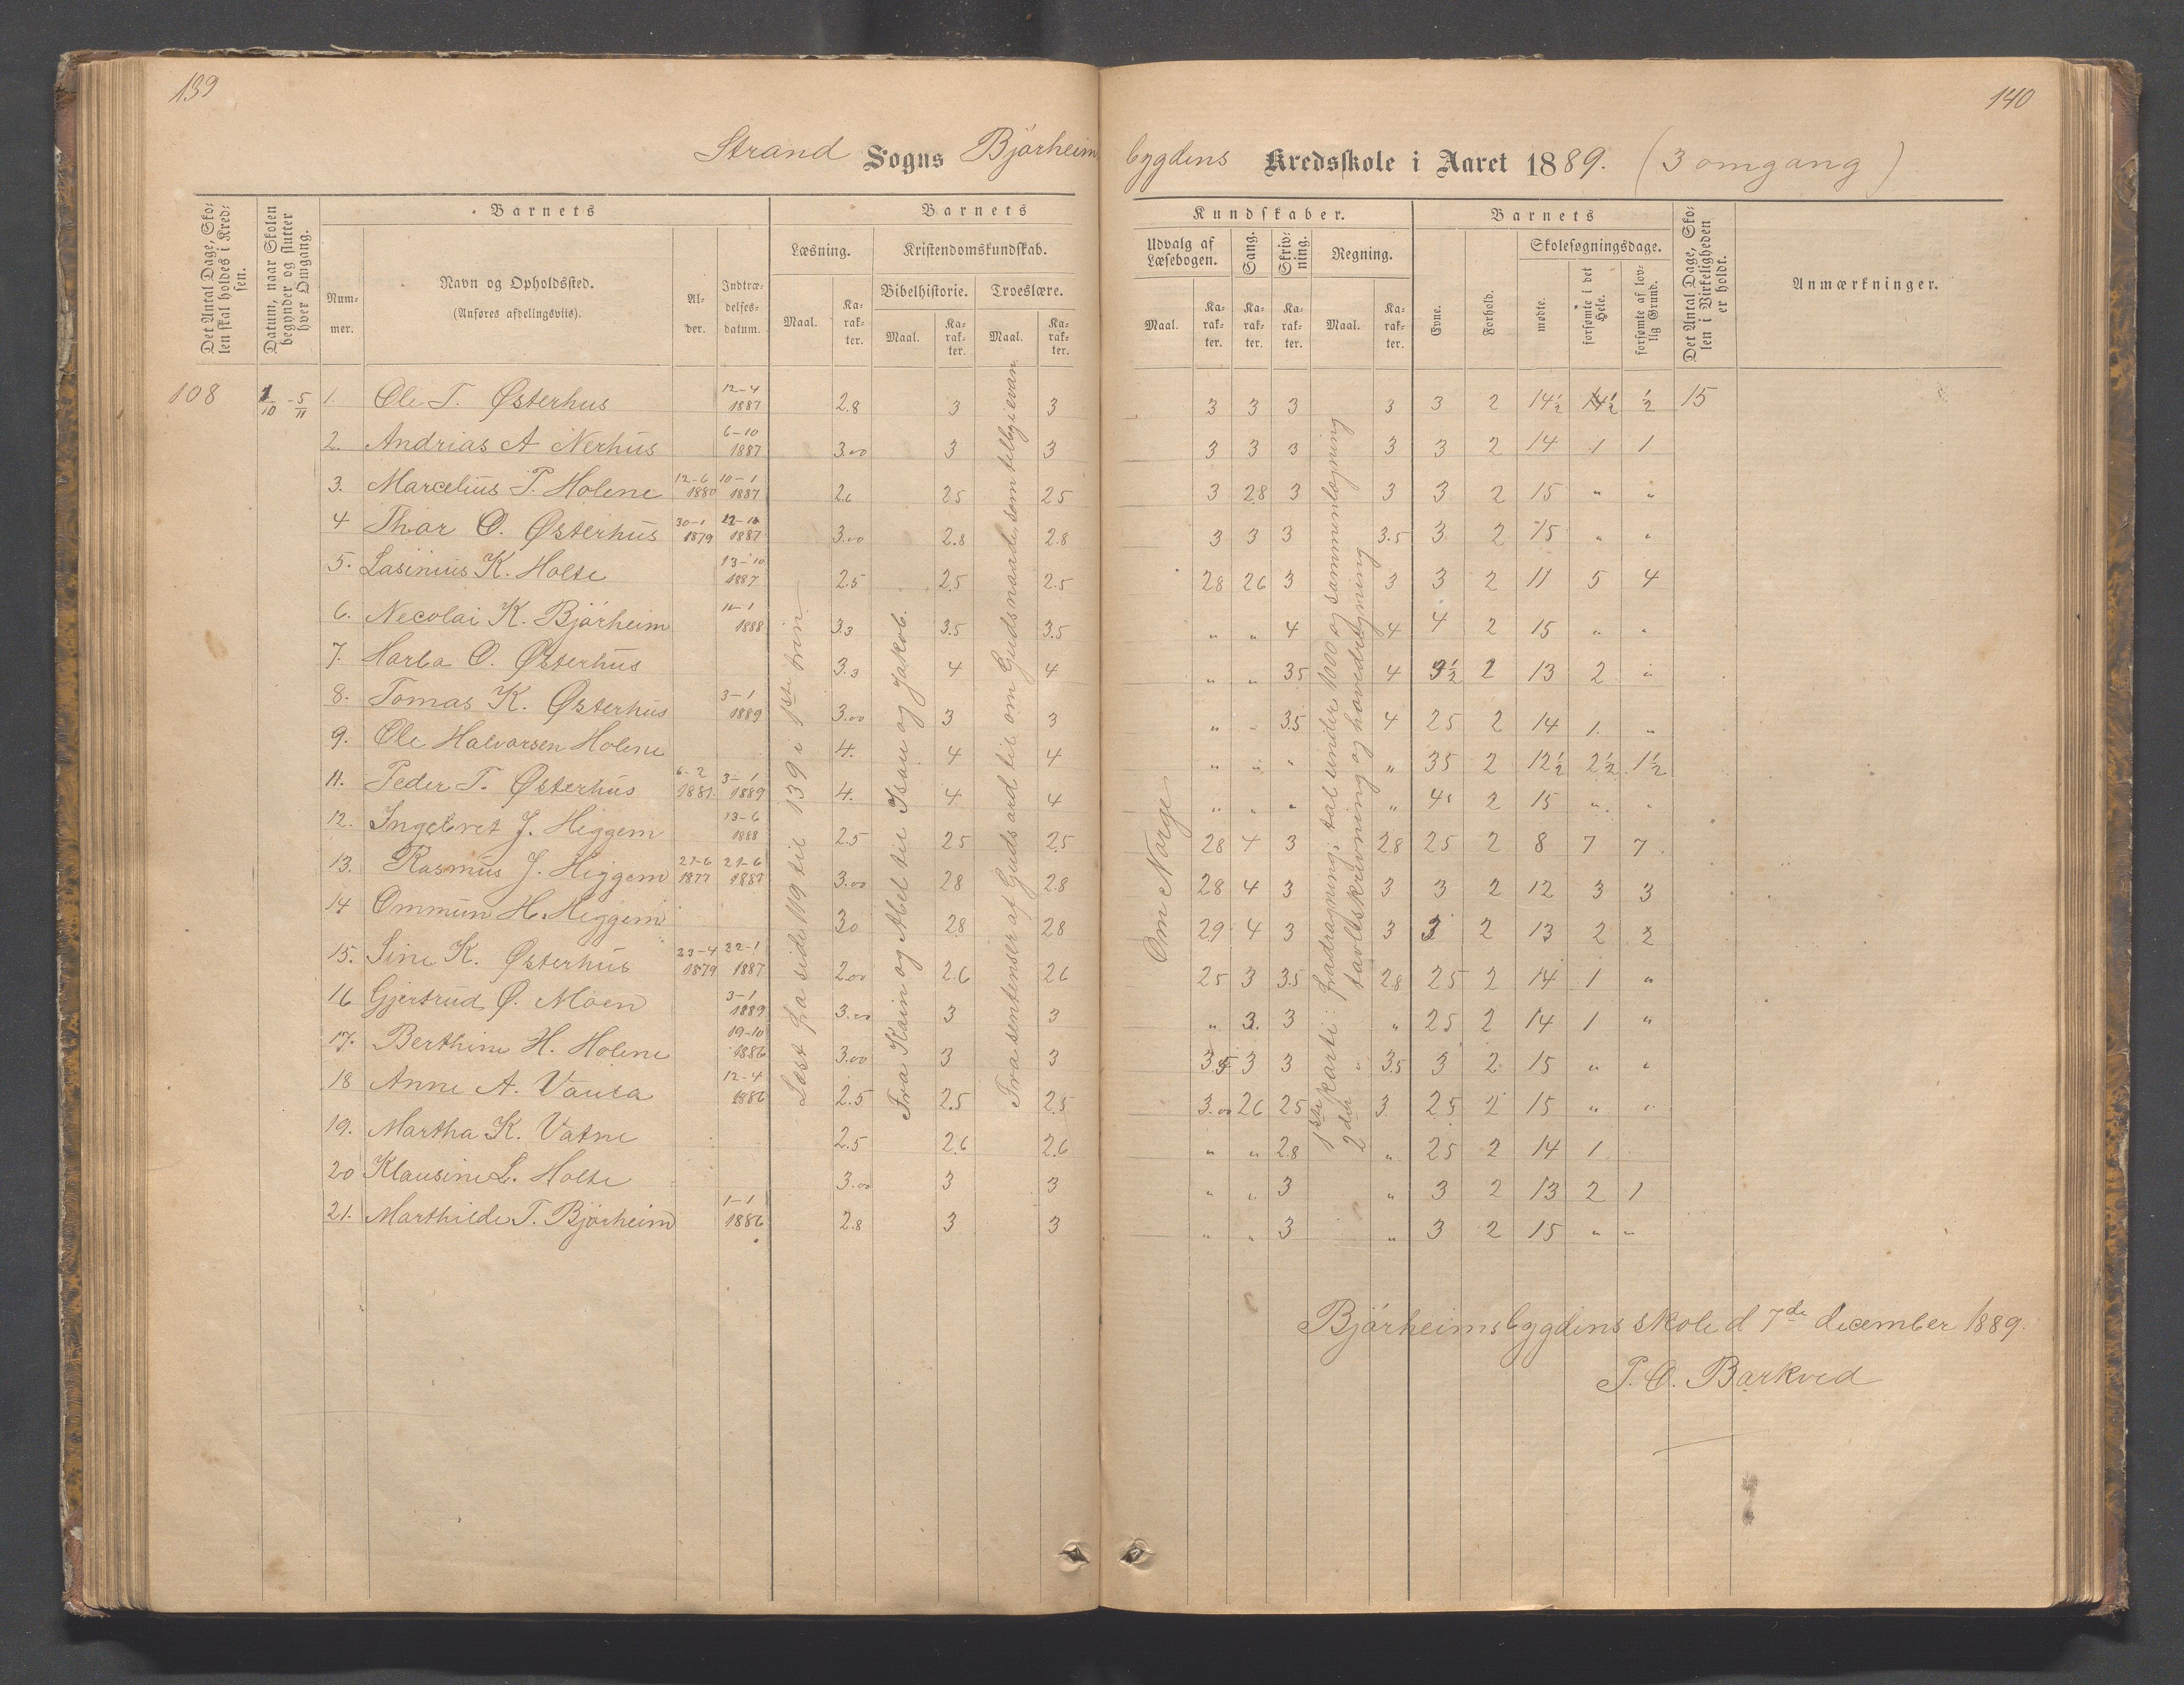 139
140
Strand Sogns Bjørheims
bygdens Kredsskole i Aaret 1889. (3 omgang)
Det Antal Dage, Skolen skal holdes i Kredsen.
Datum, naar Skolen begynder og slutter hver Omgang.
Barnets
Nummer.
Navn og Opholdssted.
(Anføres afdelingsviis).
Alder.
Indtrædelsesdatum.
Barnets
Læsning.
Maal.
Karakter.
Kristendomskundskab.
Bibelhistorie.
Maal.
Karakter.
Troeslære.
Maal.
Karakter.
Kundskaber.
Udvalg af Læsebogen.
Maal.
Karakter.
Sang.
Karakter.
Skrivning.
Karakter.
Regning.
Maal.
Karakter.
Barnets
Evne.
Forhold.
Skolesøgningsdage.
mødte.
forsømte i det Hele.
forsømte af lovlig Grund.
Det Antal Dage, Skolen i Virkeligheden er holdt.
Anmærkninger.
108 1/10 - 5/11 1. Ole T. Østerhus 12-4 1887 2.8 3 3 3 3 3 3 3 2 14½ ½ 15
2. Andrias A Nerhus 6-10 1887 3.00 3 3 3 3 3 3 3 2 14 1 1
3. Marcelius P. Holene 12-6 1880 10-1 1887 2.6 25 25 3 28 3 3 3 2 15 " "
4 Thor O. Østerhus 30-1 1879 1887 3.00 2.8 2.8 3 3 3 3.5 3 2 15 " "
5. Lasinius K. Holte 13-10 1887 2.5 2.5 2.5 28 26 3 3 3 2 11 5 4
6. Necolai K. Bjørheim 11-1 1888 3.3 3.5 3.5 " " 4 4 4 2 15 " "
7. Harba O. Østerhus 3.3 4 4 " " 35 4 2 13 2 "
8. Tomas K. Østerhus 3-1 1889 3.00 3 3 " " 3.5 4 25 2 14 1. "
9. Ole Halvorsen Holene 4. 4 4 " " " " 35 2 12½ 2½ 1½
11. Peder T. Østerhus 6-2 1881. 3-1 1889 4. 4 4 " " " " 4 2 15 " "
12. Ingebret J. Heggem 13-6 1888 2.5 25 25 28 4 3 28 25 2 8 7 7.
13. Rasmus J. Heggem 27-6 1877 27-6 1887 3.00 28 2.8 28 4 3 3 3 2 12 3 3
14 Ommun H. Heggem 30 28 28 29 4 3 3 3 2 13 2 2
15. Sine K. Østerhus 23-4 1879 22-1 1887 2.00 2.6 26 25 3 3.5 2.8 25 2 14 1 "
16 Gjertrud Ø. Moen 3-1 1889 3.00 3 3 " 3. 3 " 25 2 14 1 "
17. Berthine H. Holene 19-10 1886 3.00 3 3 3.5 3 3 " 3.5 3 2 15 " "
18 Anne A. Vausa 12-4 1886 2.5 2.5 2.5 3.00 26 25 3. 25 2 15 " "
19. Martha K. Vatne 2.5 2.6 2.6 " " 2.8 " 25 2 14 1
20 Klausine L. Holte 3.00 3 3 " " 3 " 3 2 13 2 1
21. Marthilde T. Bjørheim 1-1 1886 2.8 3 3 " " 3 " 3 2 15 " "
Læst fra side 119 til 139 i 1ste trin
Fra Kain og Abel til Esau og Jakob.
Fra sentenser af Guds ord til om Guds naade som tilbyi evan
Om Norge
1ste parti: fradragning; tal under 1000 og sammenlægning
2det " tavleskrivning og hovedregning
Bjørheimsbygdens skole d 7de december 1889.
P. O. Barkved